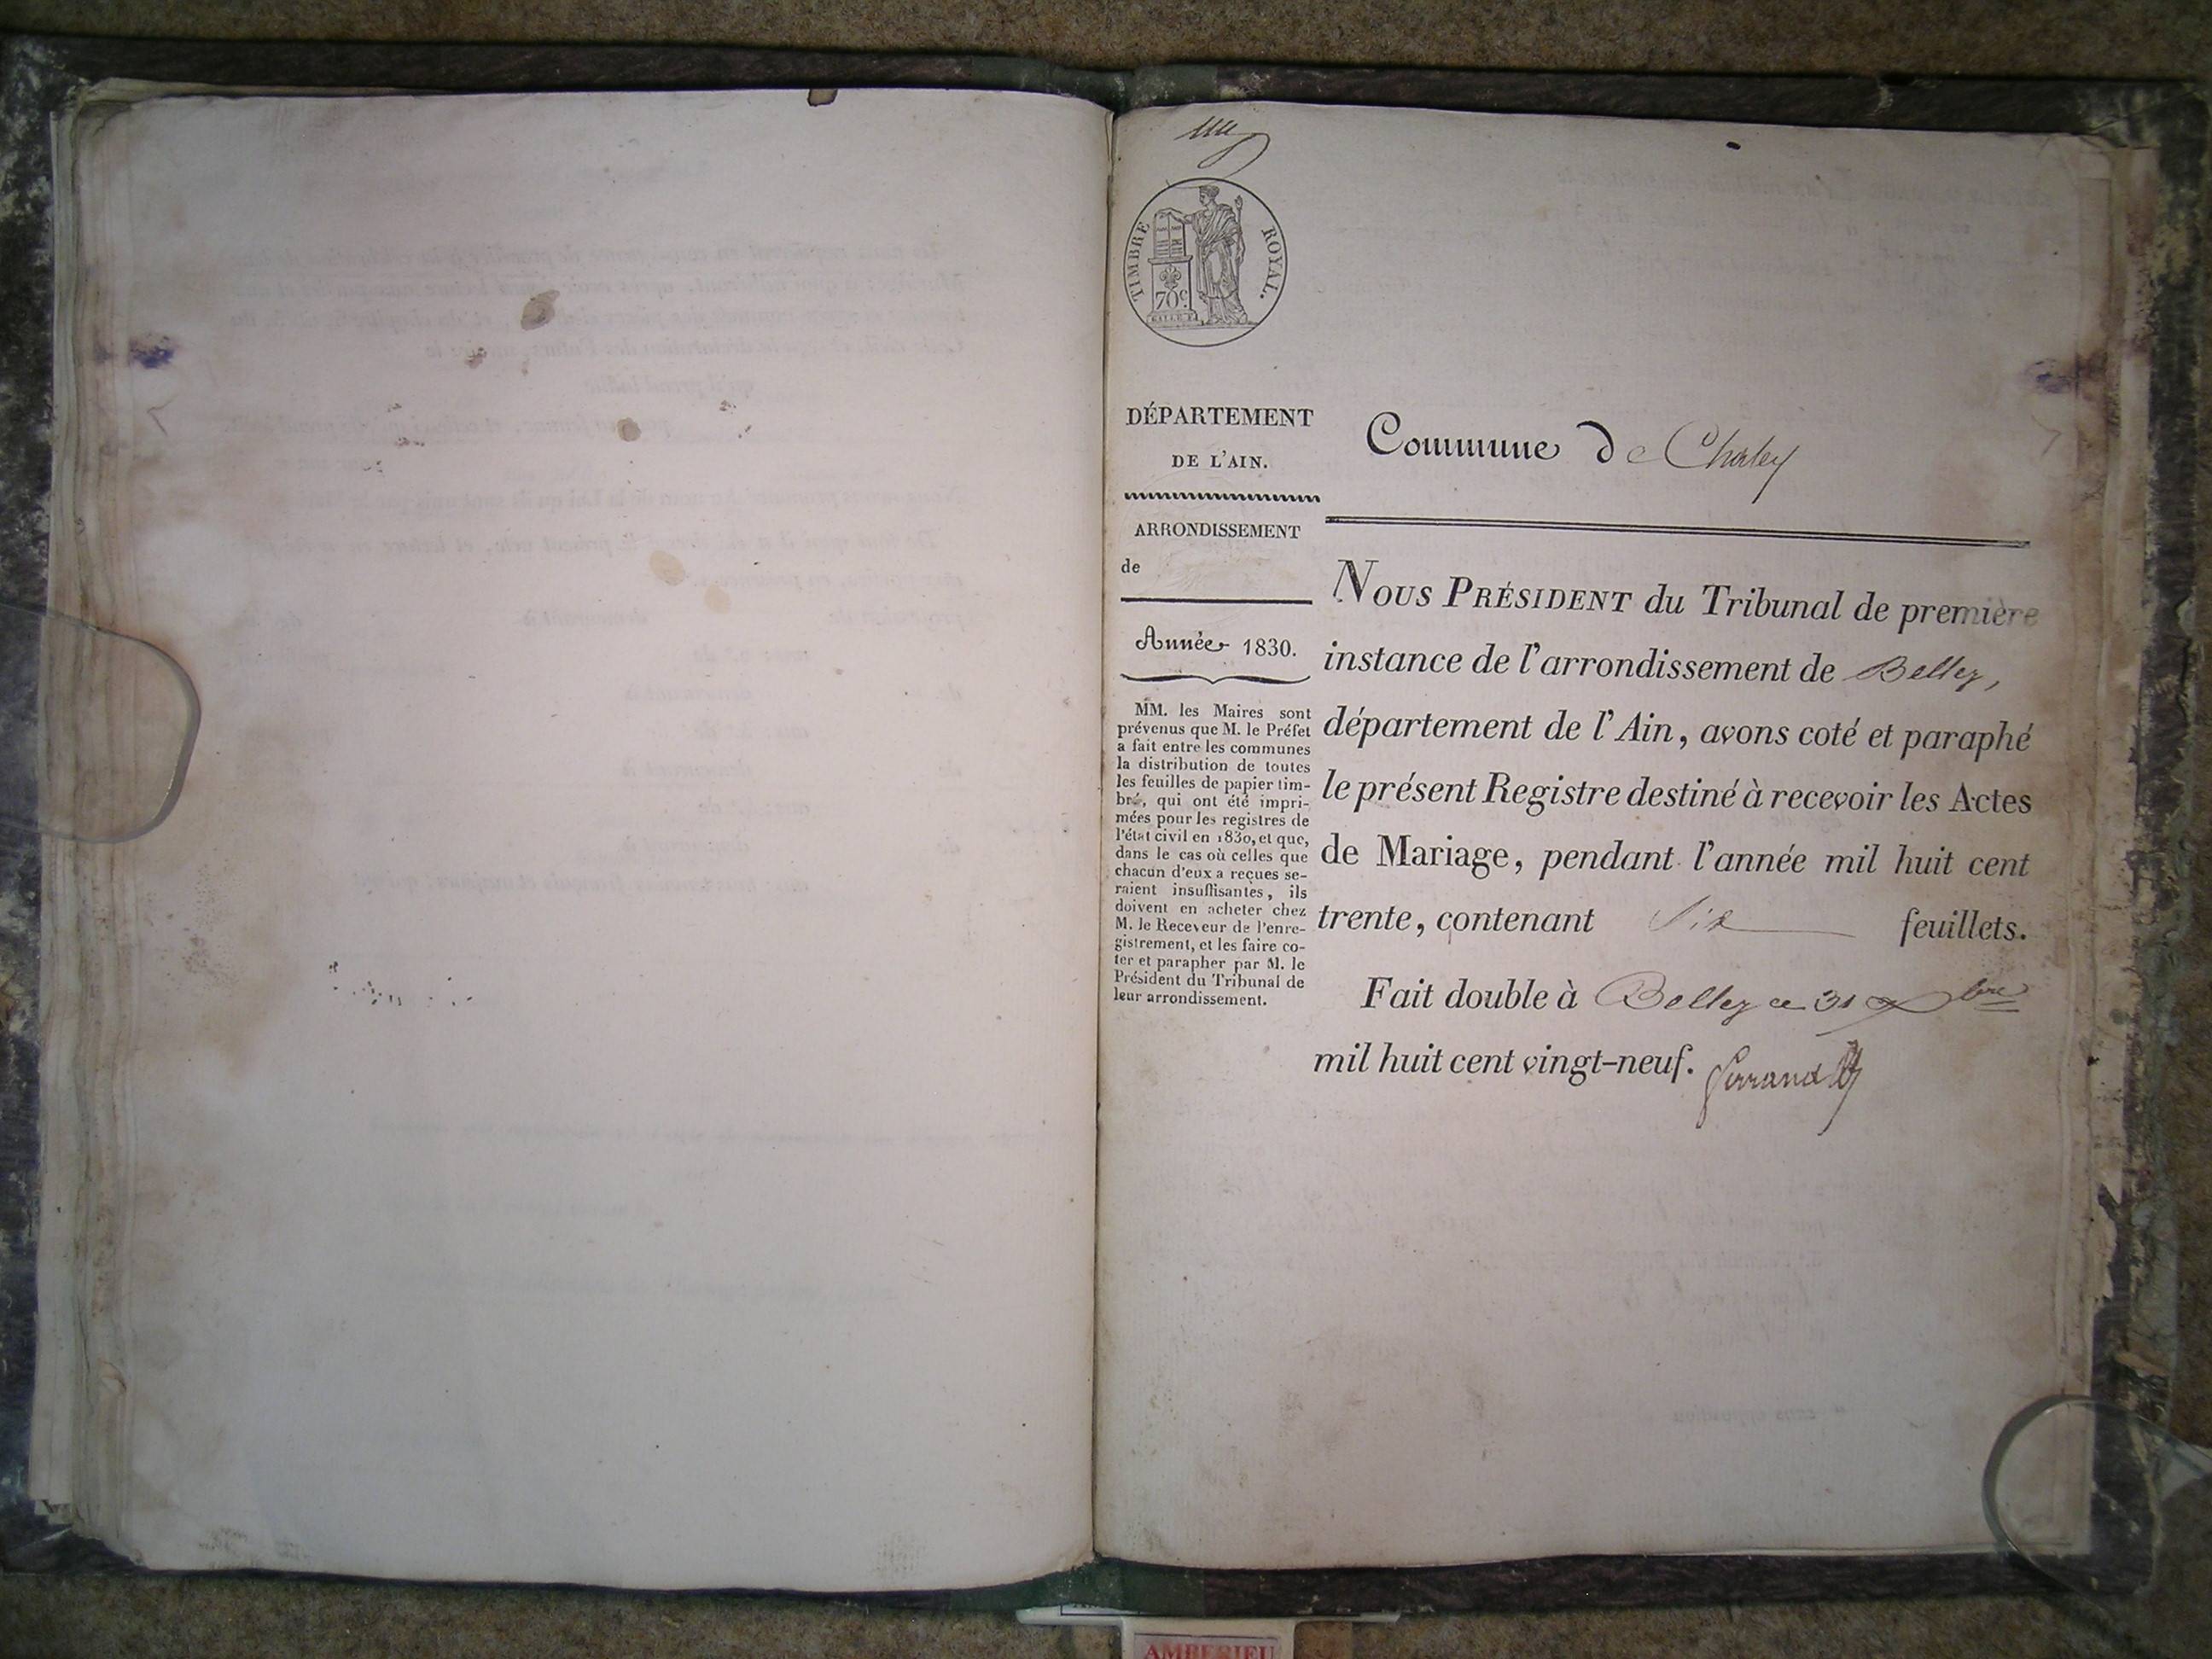 TIMBRE ROYAL.
70c.
DÉPARTEMENT
DE L'AIN.
ARRONDISSEMENT
de
Année 1830.
MM. les Maires sont
prévenus que M. le Préfet
a fait entre les communes
la distribution de toutes
les feuilles de papier tim-
bré, qui ont été impri-
mées pour les registres de
l'état civil en 1830, et que,
dans le cas où celles que
chacun d'eux a reçues se-
raient insuffisantes, ils
doivent en acheter chez
M. le Receveur de l'enre-
gistrement, et les faire co-
ter et parapher par M. le
Président du Tribunal de
leur arrondissement.
Commune de Chaley
NOUS PRÉSIDENT du Tribunal de première
instance de l'arrondissement de Belley,
département de l'Ain, avons coté et paraphé
le présent Registre destiné à recevoir les Actes
de Mariage, pendant l'année mil huit cent
trente, contenant Six feuillets.
Fait double à Belley ce 31 Xbre
mil huit cent vingt-neuf.
AMBERIEU